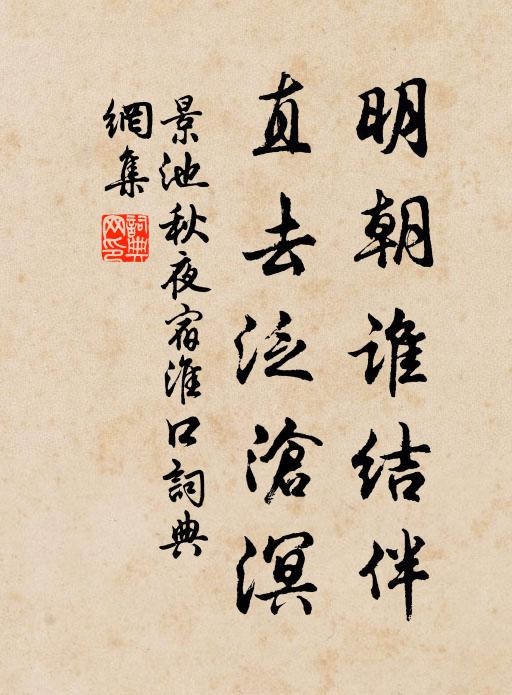 明朝谁结伴
直去泛滄溟
景池秋夜宿淮口詞典
網集
詞典
网印